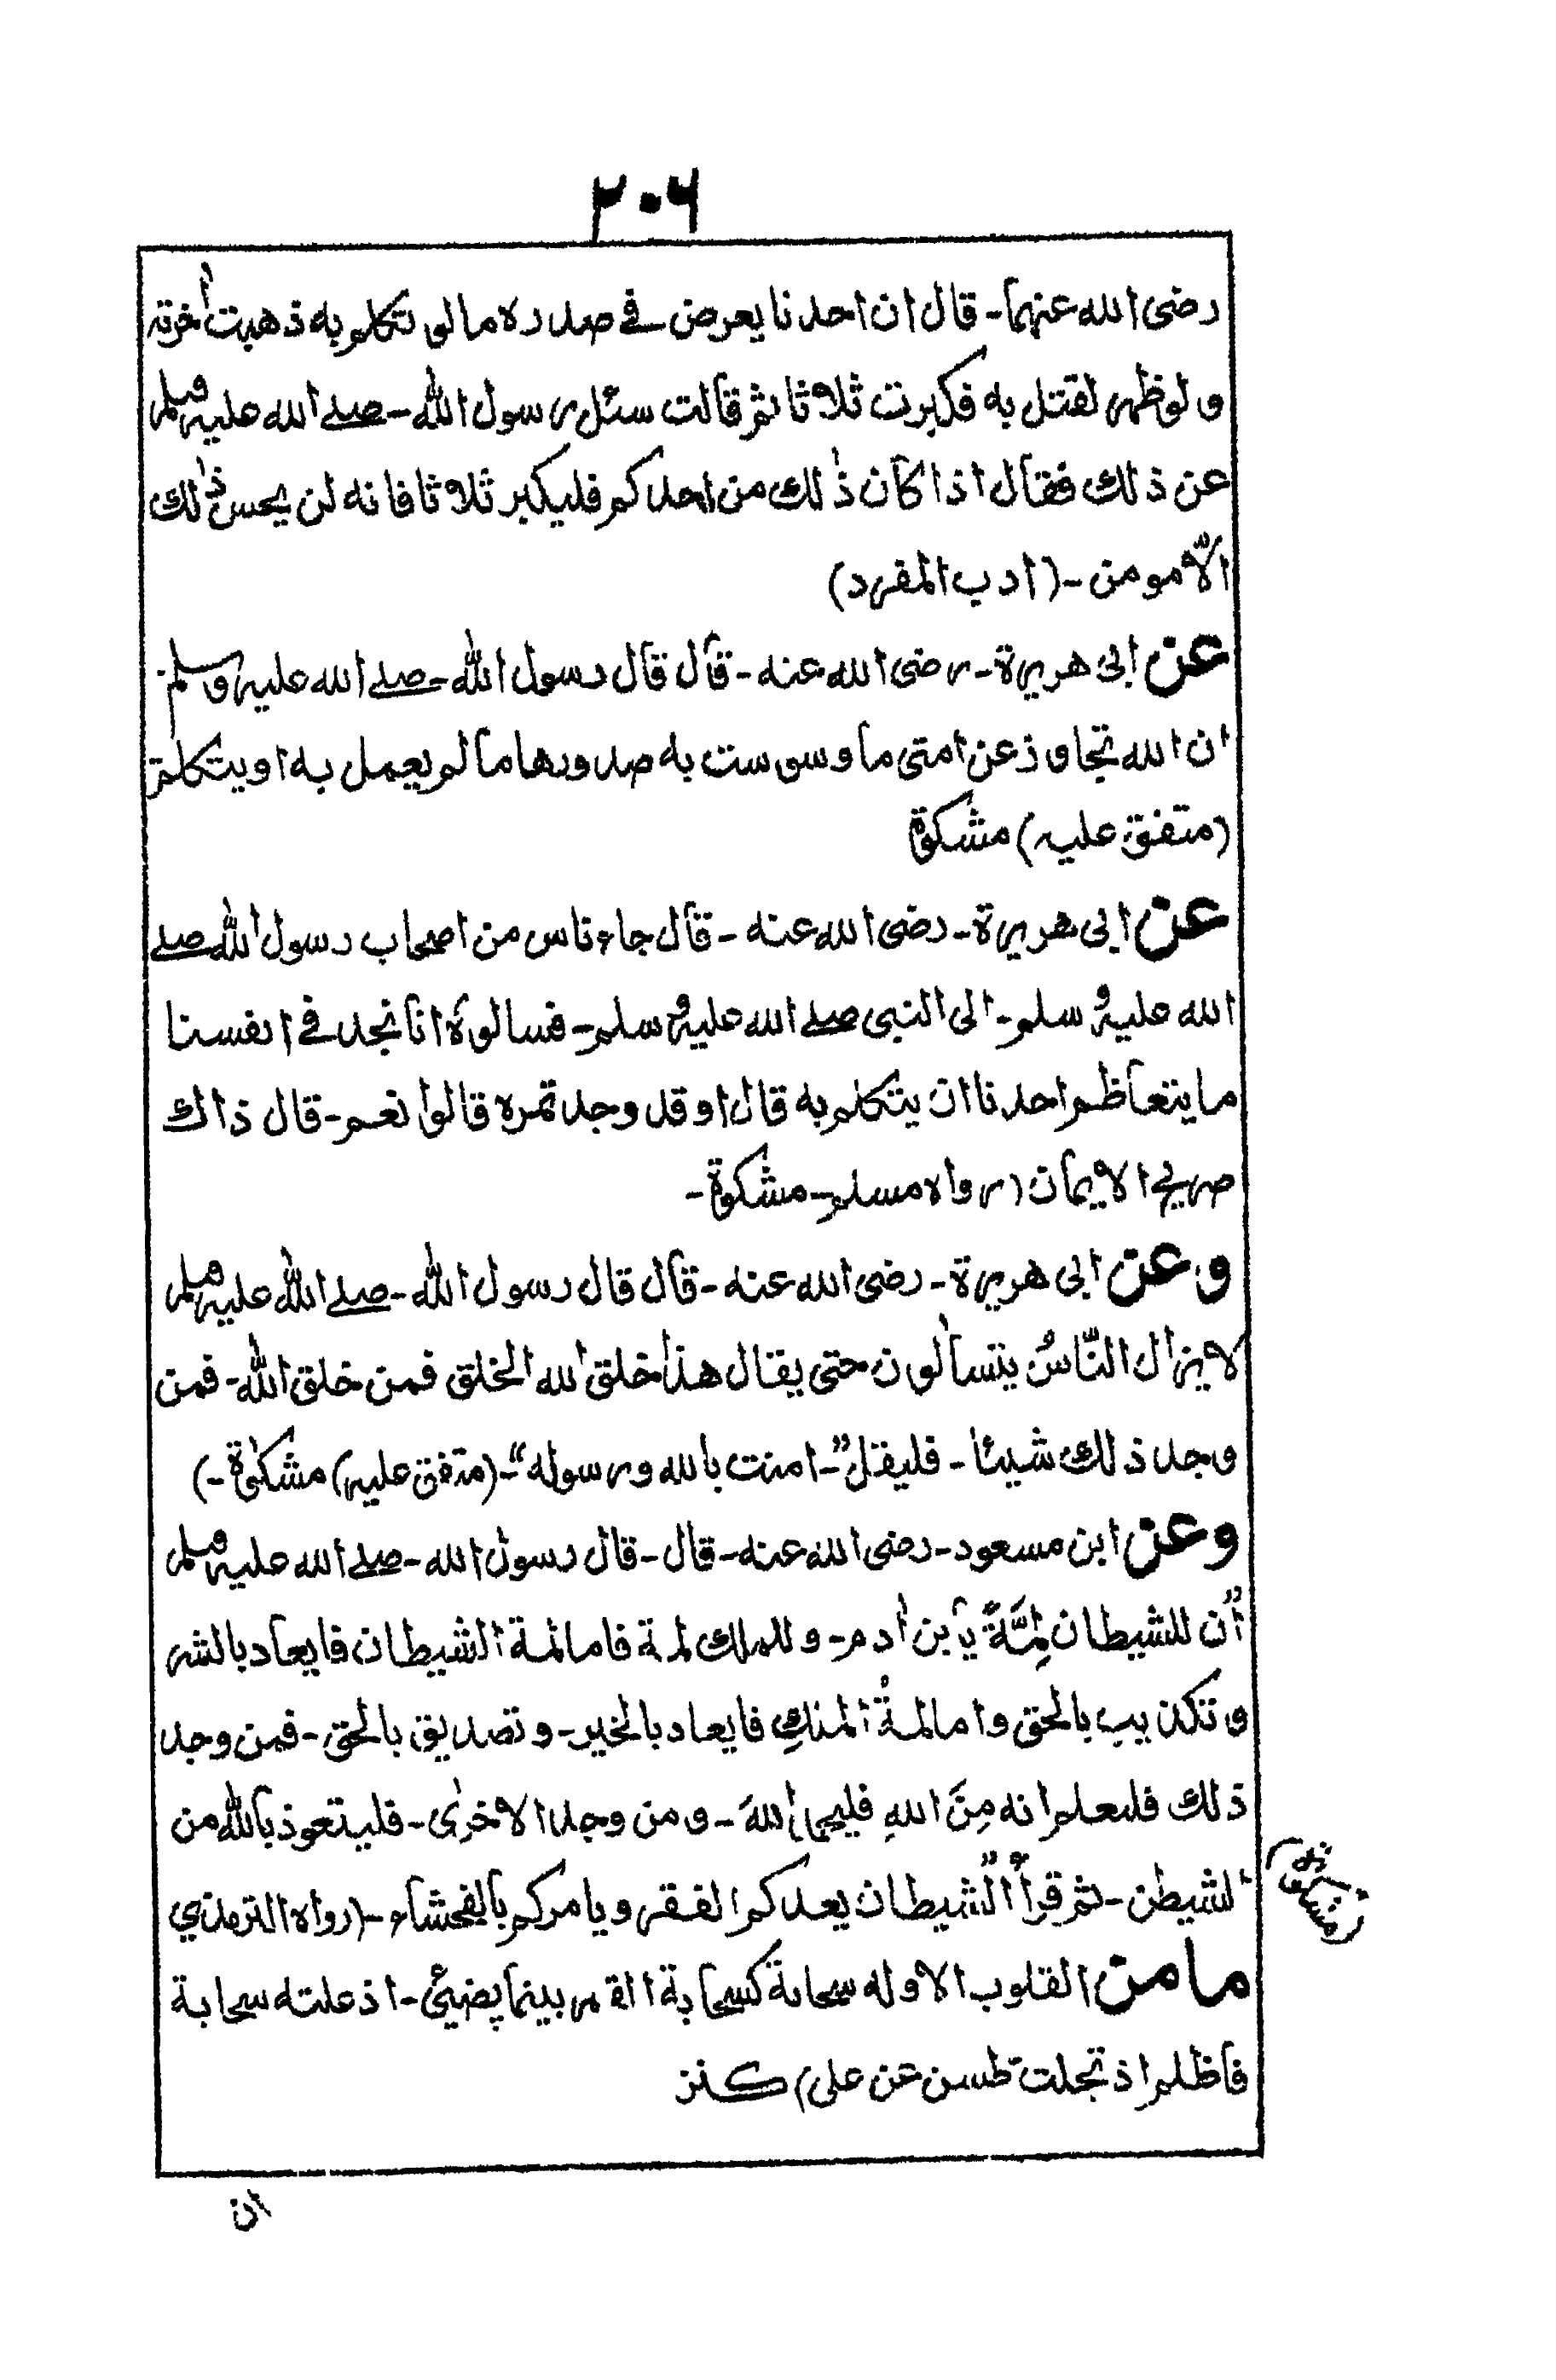 ۲۰۶
رضی الله عنہما۔ قال ان احدنا یعرض فے صدرہ ما لو تکلم بہ ذھبت اٰخرتہ
و لو ظھر لقتل بہ فکبرت ثلاثا ثم قالت سئل رسول اللہ۔ صلے اللہ علیہ وسلم
عن ذلك فقال اذا کان ذٰلك من احدکم فلیکبر ثلاثا فانہ لن یحس ذٰلك
الّا مومن۔ (ادب المفرد)
عن ابی ھریرۃ۔ رضی اللہ عنہ۔ قال قال رسول اللہ۔ صلے اللہ علیہ وسلم
ان اللہ تجاوز عن امتی ما وسوست بہ صدورھا ما لم یعمل بہ او یتکلم
(متفق علیہ) مشکوۃ
عن ابی ھریرۃ۔ رضی اللہ عنہ۔ قال جاء ناس من اصحاب رسول اللہ صلے
اللہ علیہ و سلم۔ الی النبی صلے اللہ علیہ و سلم۔ فسالوہ انا نجد فے انفسنا
ما یتعاظم احدنا ان یتکلم بہ قال او قد وجدتمرہ قالوا نعم۔ قال ذاك
صریح الایمان (رواہ مسلم۔ مشکوۃ۔
و عن ابی ھریرۃ۔ رضی اللہ عنہ۔ قال قال رسول اللہ۔ صلے اللہ علیہ وسلم
لا یزال النّاسُ یتسالون حتی یقال ھذا خلق اللہ الخلق فمن خلق اللہ۔ فمن
وجد ذلك شیئا۔ فلیقل"۔ امنت باللہ و رسولہ"۔ (متفق علیہ) مشکوۃ۔)
و عن ابن مسعود۔ رضی اللہ عنہ۔ قال۔ قال رسول اللہ۔ صلے اللہ علیہ وسلم
"ان للشیطان لِمَّۃً یابن اٰدم۔ و للملك لمۃ فاما لمۃ الشیطان فایعاد بالشر
و تکذیب بالحق و اما لمۃُ الملكِ فایعاد بالخیر۔ و تصدیق بالحق۔ فمن وجد
ذلك فلیعلم انہ مِنَ اللہِ فلیحمد اللہَ۔ و من وجد الاخرٰی۔ فلیتعوذ باللہ من
الشیطن۔ ثم قرأ "الشیطان یعدکم الفقر و یامرکم بالفحشاء۔ (رواہ الترمذی
(مشکوۃ)
ما من القلوب الا ولہ سحابۃ کسحابۃ القمر بینما یضیئ۔ اذ علتہ سحابۃ
فاظلم اذ تجلت طسن عن علی) کنز
ان